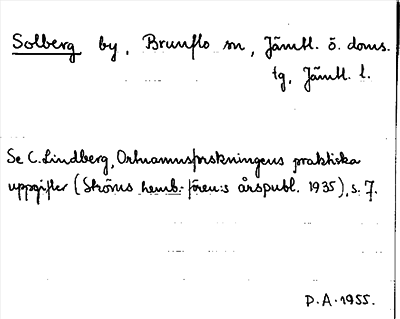 Solberg by, Brunflo sn, Jämtl. ö. doms.
tg, Jämtl. l.
Se C. Lindberg, Ortnamnsforskningens praktiska
uppgifter (Ströms hemb.-fören:s årspubl. 1935), s. 7.
P.A. 1955.